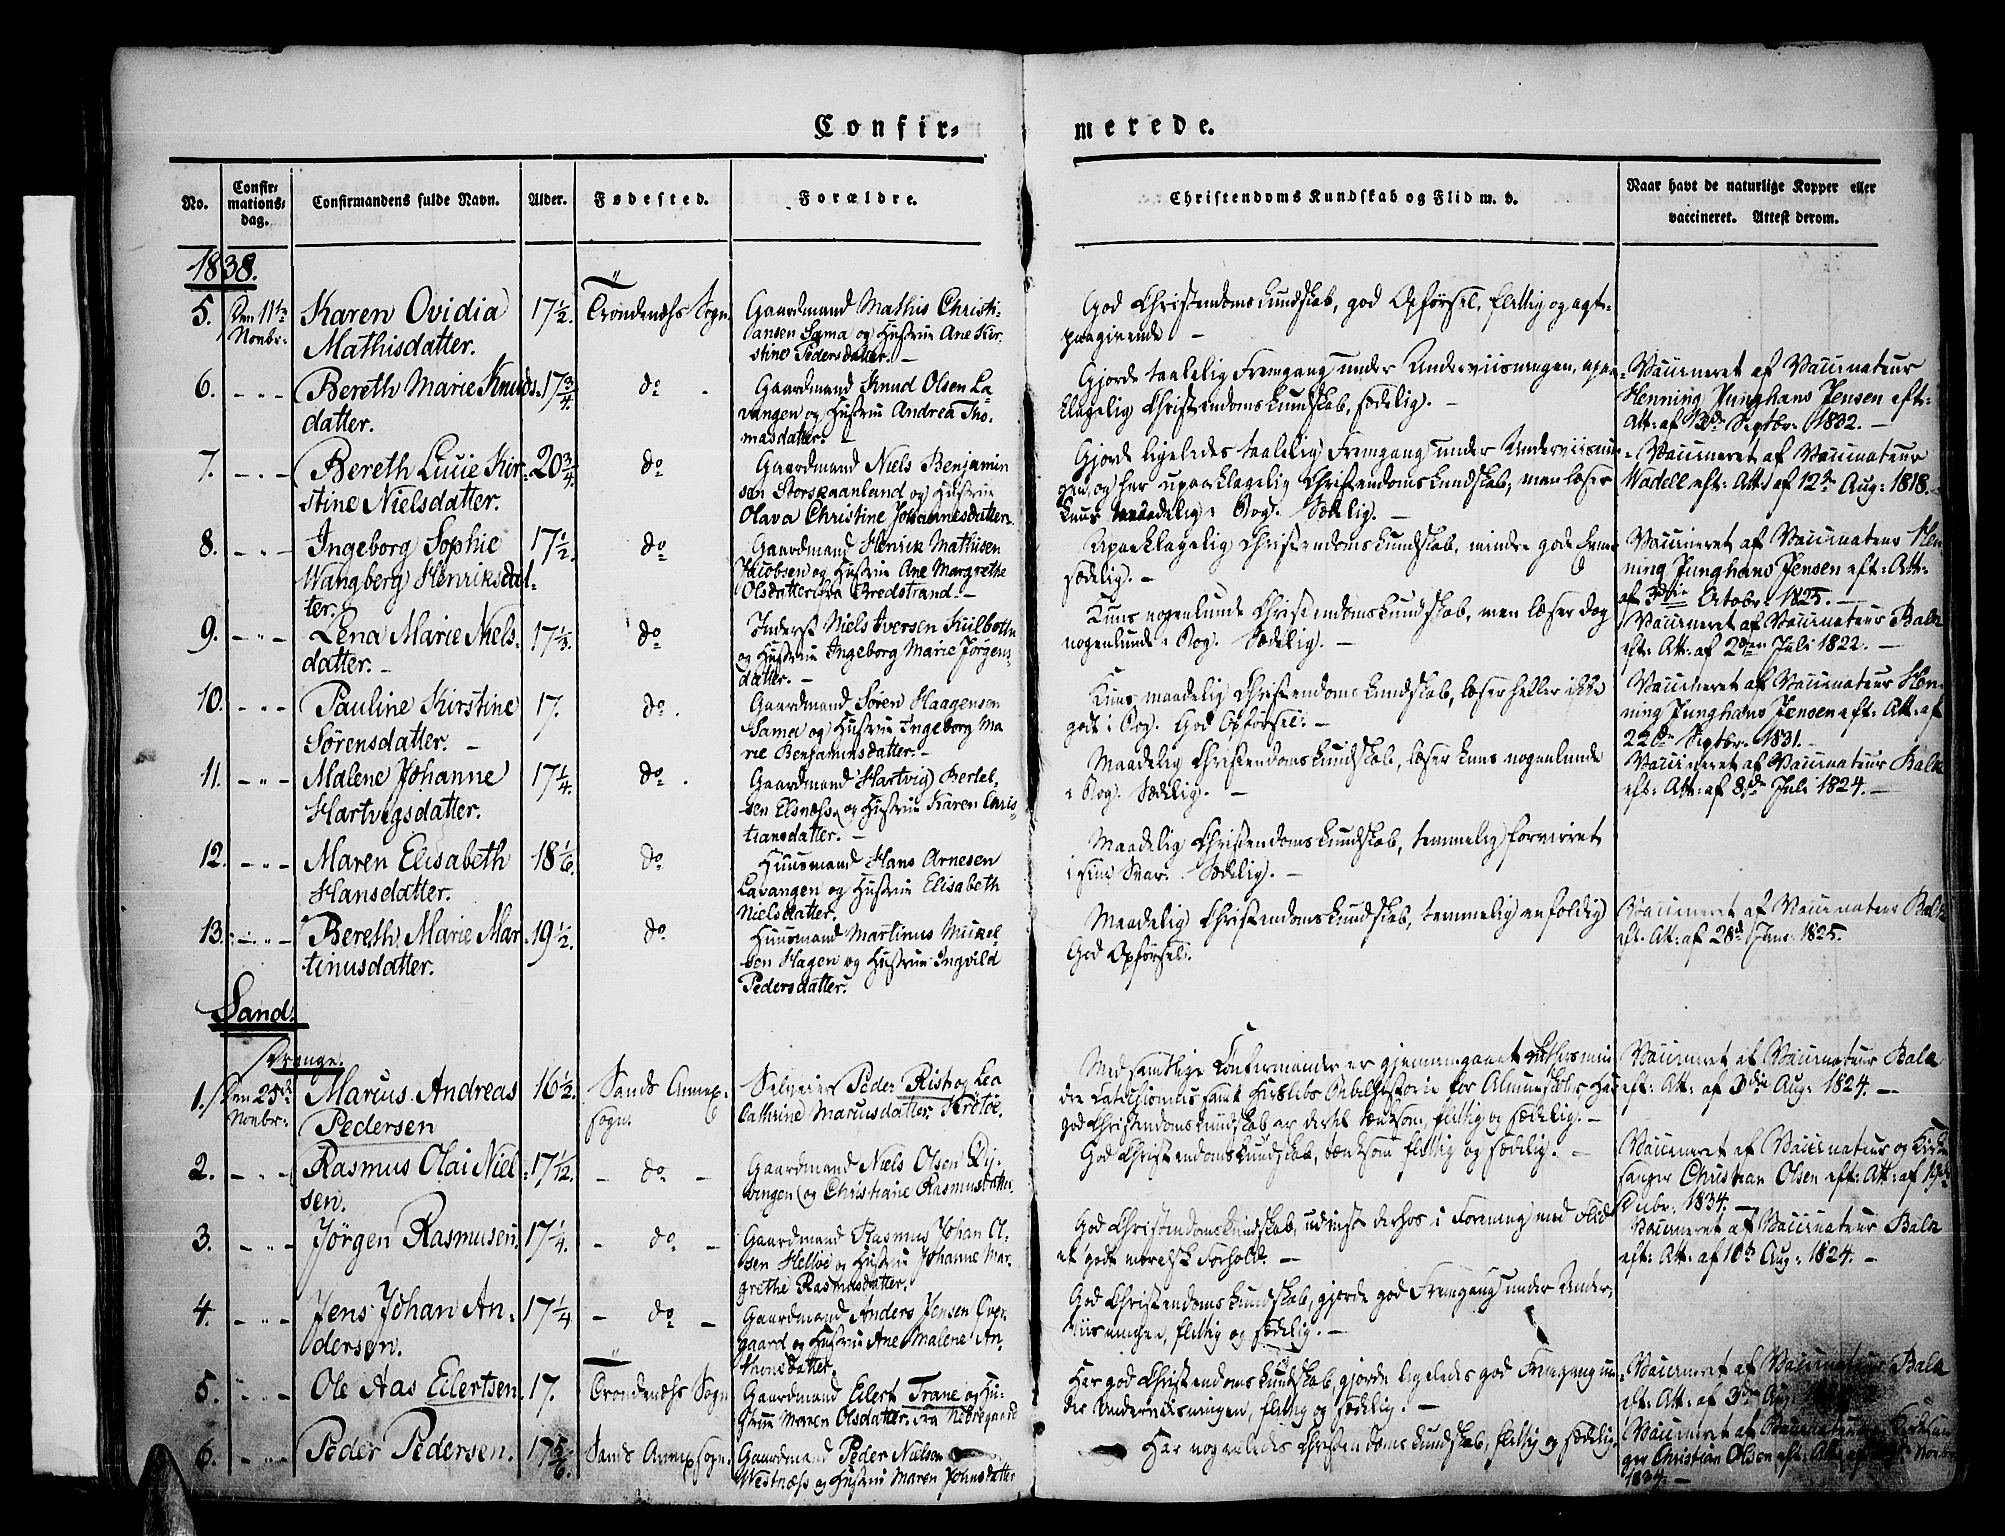 Confir-
merede.
No.
Confir-
mations-
dag.
Confirmandens fulde Navn.
Alder.
Fødested.
Forældre.
Christendoms Kundskab og Flid m. v.
Naar havt de naturlige Kopper eller
vaccineret. Attest derom.
1838.
5. Den 11te Novbr: Karen Ovidia
Mathisdatter.
17 1/2.
Trondenæhs Sogn.
Gaardmand Mathis Christi-
ansen Sama og Hustrue Ane Kir-
stine Pedersdatter. –
God Christendomskundskab, god Opførsel, flittig og agt-
paagivende –
6. Bereth Marie Knuds-
datter.
17 3/4.
do
Gaardmand Knud Olsen La-
vangen og Hustrue Andrea Tho-
masdatter. –
Gjorde taalelig Fremgang under Underviisningen, upaa-
klagelig Christendomskundskab, sædelig. –
Vaccineret af Vaccinateur
Henning Junghans Jensen eft:
Att: af Septbr. 1832. –
7. Bereth Lucie Kir-
stine Nielsdatter.
20 3/4.
do
Gaardmand Niels Benjamin
sen Storskaanland og Hustrue
Olava Christine Johannesdatter.
Gjorde ligeledes taalelig Fremgang under Underviisnin-
gen, og har upaaklagelig Christendomskundskab, men læser
kuns maadelig i Bog. Sædelig. –
Vaccineret af Vaccinateur
Wadell eft: Att: af 12te Aug: 1818. –
8. Ingeborg Sophie
Wangberg Henriksdat-
ter.
17 1/2.
do
Gaardmand Henrick Mathisen
Jacobsen og Hustrue Ane Margrethe
Olsdatter fra Bredstrand. –
Upaaklagelig Christendomskundskab, mindre gode Evner
sædelig. –
Vaccineret af Vaccinateur Hen
ning Junghans Jensen eft: Att:
af 3die Octobr. 1825. –
9. Lena Marie Niels-
datter. –
17 1/3.
do
Inderst Niels Iversen Kulbotn
og Hustrue Ingeborg Marie Jørgens-
datter. –
Kuns nogenlunde Christendomskundskab, men læser dog
nogenlunde i Bog. Sædelig. –
Vaccineret af Vaccinateur Balk
eft: Att: af 2den Juli 1822. –
10. Pauline Kirstine
Sørensdatter. –
17.
do.
Gaardmand Søren Haagensen
Sama og Hustrue Ingeborg Ma
rie Benjaminsdatter. –
Kuns maadelig Christendomskundskab, læser heller ikke
godt i Bog. God Opførsel. –
Vaccineret af Vaccinateur Hen-
ning Junghans Jensen eft: Att: af
22de Septbr. 1831. –
11. Malene Johanne
Hartvigsdatter.
17 1/4.
do.
Gaardmand Hartvig Bertel-
sen Elsnæhs og Hustrue Karen Chris-
tiansdatter. –
Maadelig Christendomskundskab, læser kuns nogenlunde
i Bog. Sædelig. –
Vaccineret af Vaccinateur Balk
eft: Att: af 8de Juli 1824. –
12. Maren Elisabeth
Hansdatter.
18 1/6.
do
Huusmand Hans Arnesen
Lavangen og Hustrue Elisabeth
Nielsdatter.
Maadelig Christendomskundskab, temmelig forvirret
i sine Svar. Sædelig. –
13. Bereth Marie Mar-
tinusdatter.
19 1/2.
do.
Huusmand Martinus Mickel-
sen Hagen og Hustrue Ingvild
Pedersdatter.
Maadelig Christendomskundskab, temmelig enfoldig
God Opførsel.
Vaccineret af Vaccinateur Balk
eft: Att: af 28de Janr. 1825.
Sand.
Drenge.
1. Den 25de Novbr: Marcus Andreas
Pedersen
16 1/2.
Sands Annex-
sogn.
Selveier Peder Rist og Lea
Cathrine Marcusdatter. Krøtøe.
Med samtlige Confirmander er gjennemgaaet Luthers min
dre Catechismus samt Bibelhistorie for Almueskoler. Har
god Christendomskundskab er dertil tænksom, flittig og sædelig. –
Vaccineret af Vaccinateur Balk
eft: Att: af 3die Aug: 1824. –
2. Rasmus Olai Niel-
sen.
17 1/12.
do
Gaardmand Niels Olsen
og Christiane Rasmusdatter.
God Christendomskundskab, tænksom flittig og sædelig. –
Vaccineret af Vaccinateur og Kirke
sanger Christian Olsen eft: Att: af 19de
1834. –
3. Jørgen Rasmusen.
17 1/4.
do
Gaardmand Rasmus Johan Ol-
sen Hellvie og Hustrue Johanne Mar-
grethe Rasmusdatter.
God Christendomskundskab, udviist derhos i Forening med Flid
et godt moralsk Forhold. –
Vaccineret af Vaccinateur Balk
eft: Att: af 10de Aug: 1824. –
4. Jens Johan An-
dersen.
17 1/4
do
Gaardmand Anders Jensen Over
gaard og Hustrue Ane Malene An-
thonsdatter
God Christendomskundskab, gjorde god Fremgang under Under-
viisningen, flittig og sædelig. –
5. Ole Aas Eilertsen
17.
Trondenæhs Sogn
Gaardmand Eilert Trane og Hu-
strue Maren Olsdatter. fra Nebregaard
Har god Christendomskundskab, gjorde ligeledes god Fremgang un-
der Underviisningen, flittig og sædelig. –
Vaccineret af Vaccinateur Balk
eft: Att: af 3die Aug:
6. Peder Pedersen.
17 5/6.
Sands Annexsogn.
Gaardmand Peder Nielsen
Westnæhs og Hustrue Maren Johnsdatter
Har nogenledes Christendomskundskab, flittig og sædelig.
Vaccineret af Vaccinateur og Kirkesan
ger Christian Olsen eft: Att: af Novbr
1834. –